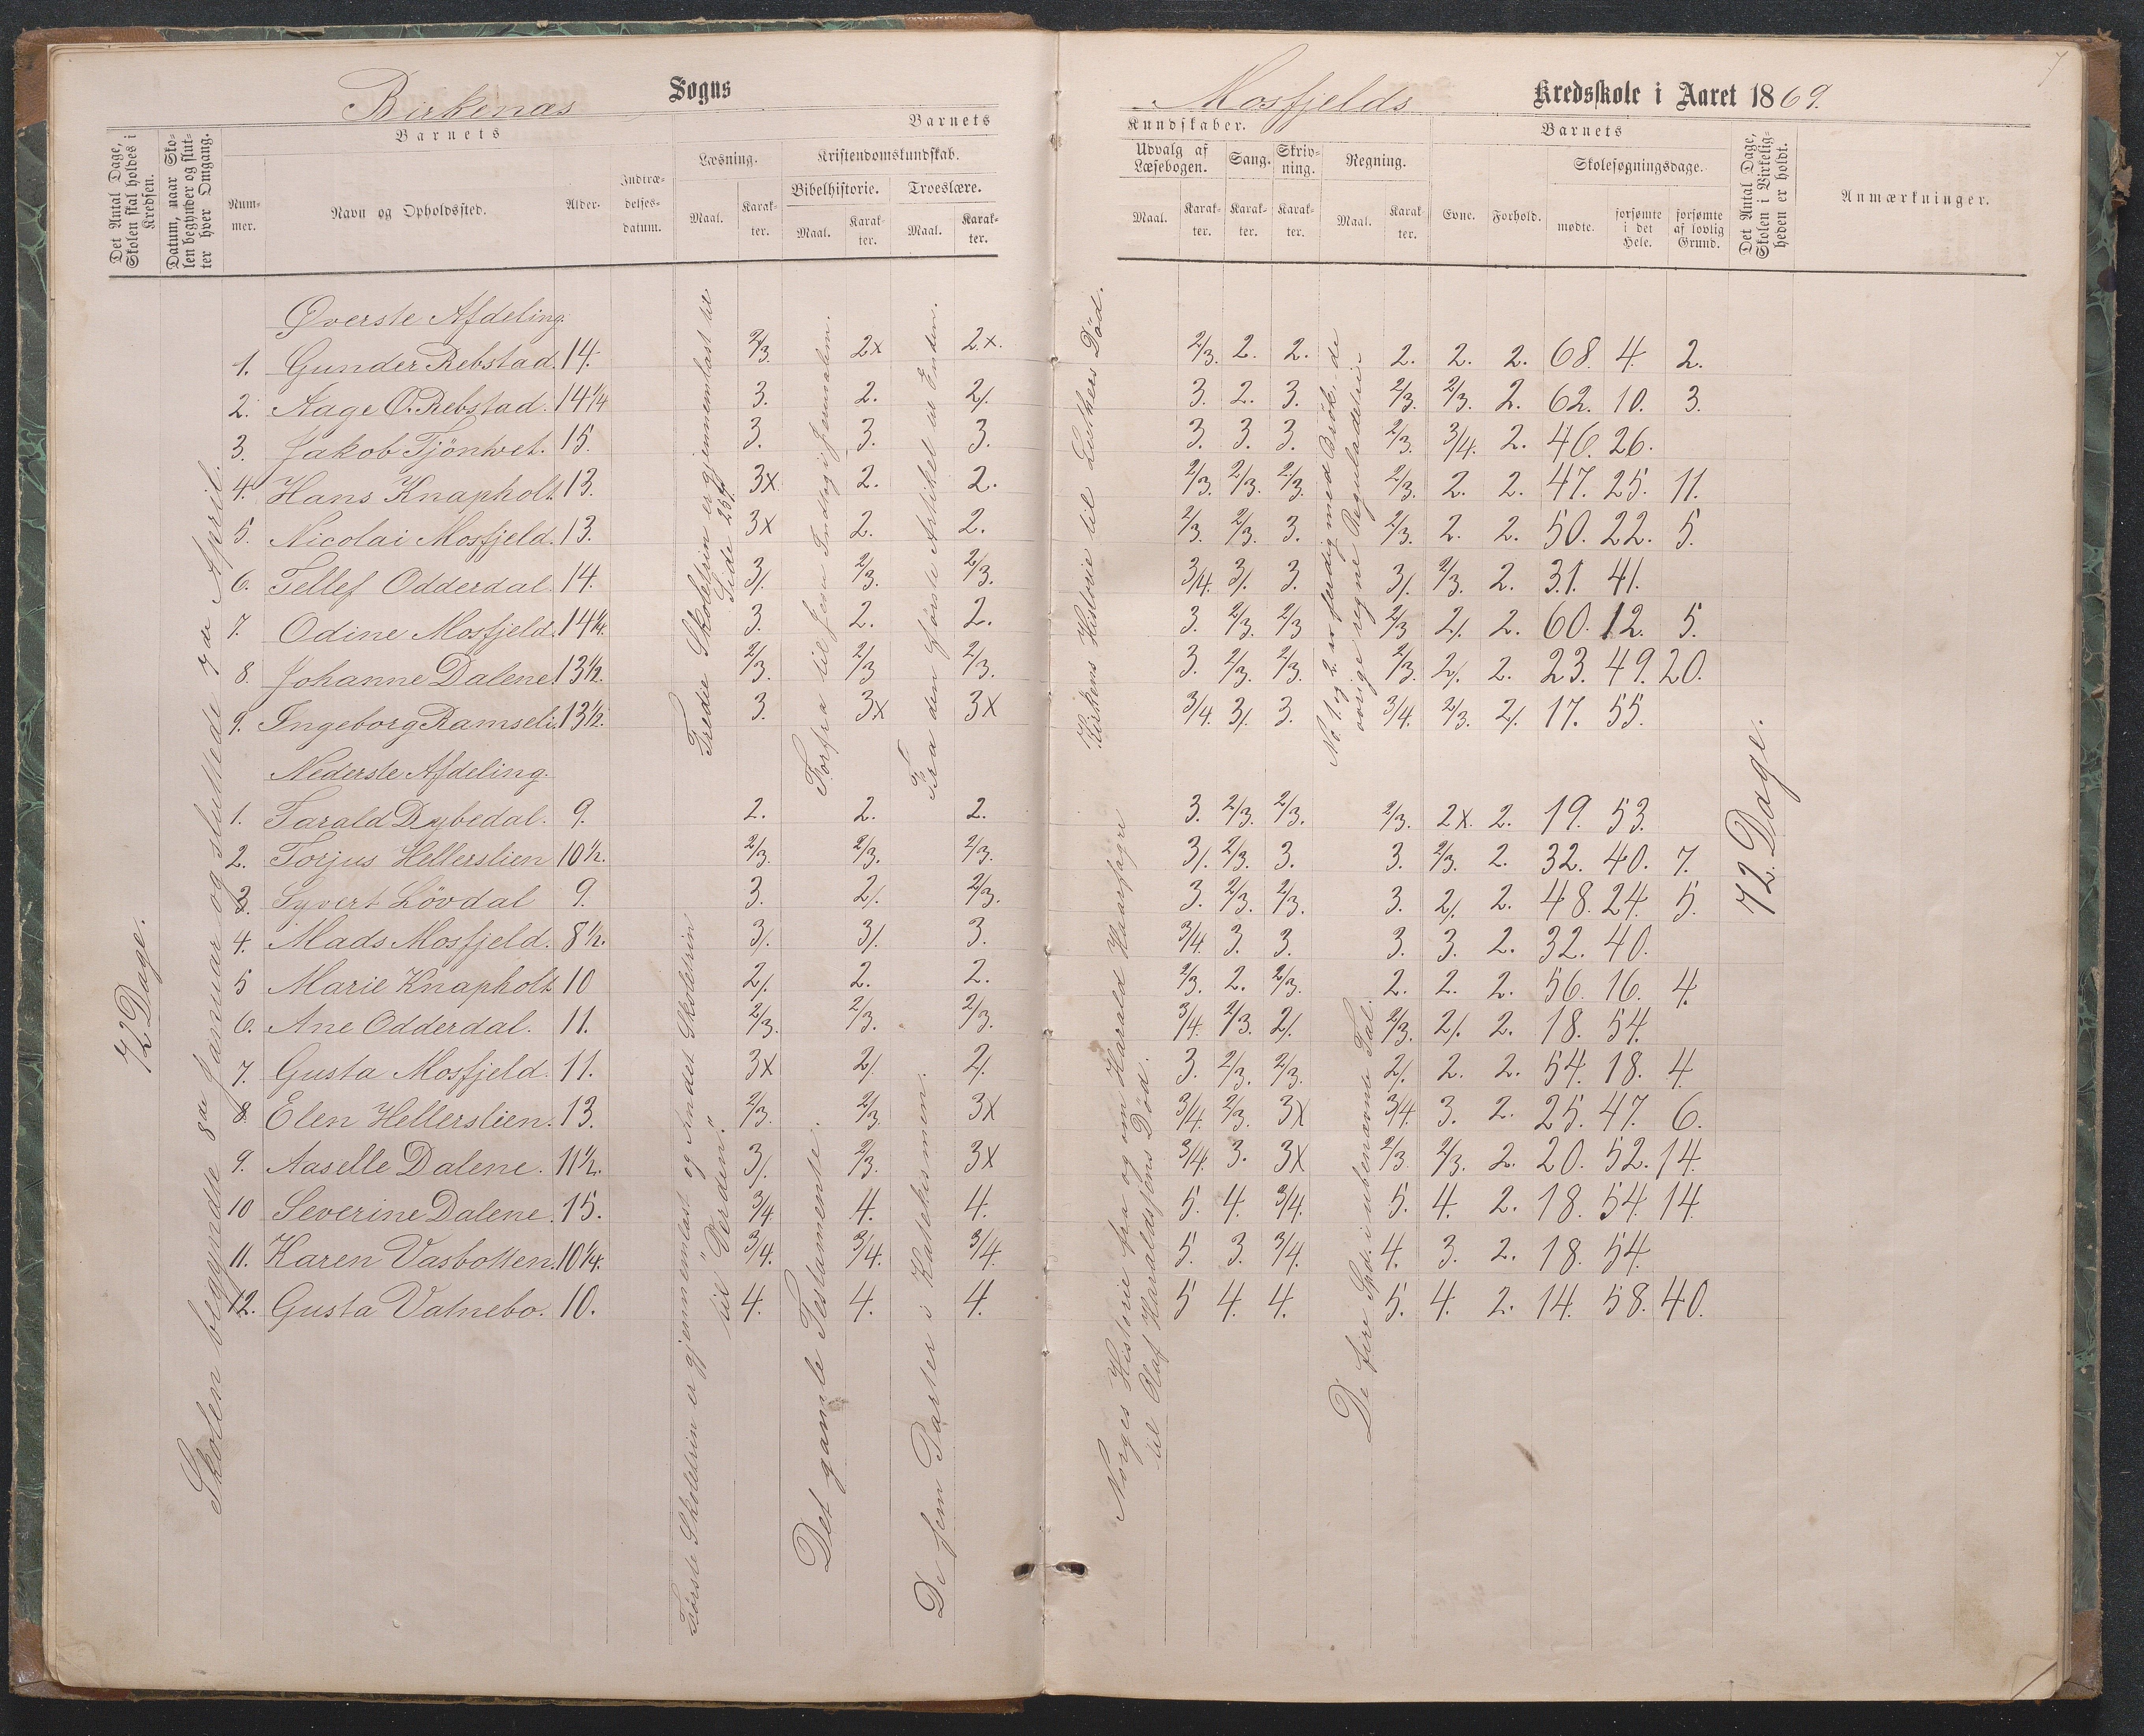 Birkenæs Sogns
Det Antal Dage, Skolen skal holdes i Kredsen.
Datum, naar Skolen begynder og slutter hver Omgang.
Barnets
Nummer.
Navn og Opholdssted.
Alder.
Indtrædelsesdatum.
Barnets
Læsning.
Maal. Karakter.
Kristendomskundskab.
Bibelhistorie. Troeslære.
Maal. Karakter. Maal. Karakter.
72 Dage.
Skolen begyndte 8de Januar og sluttede 7de April.
Øverste Afdeling.
1. Gunder Rebstad. 14. 2/3. 2x 2x.
2. Aage O. Rebstad. 14 1/4 3. 2. 2/.
3. Jakob Tjönhvet. 15. 3. 3. 3.
4. Hans Knapholt. 13. 3x 2. 2.
5. Nicolai Mosfjeld. 13. 3x 2. 2.
6. Tellef Odderdal. 14. 3/. 2/3. 2/3.
7. Odine Mosfjeld. 14 1/4. 3. 2. 2.
8. Johanne Dalene. 13 1/2. 2/3. 2/3 2/3.
9. Ingeborg Ramseli. 13 1/2. 3. 3x 3x
Nederste Afdeling.
1. Tarald Dybedal. 9. 2. 2. 2.
2. Torjus Hellerslien 10 1/2. 2/3. 2/3. 2/3.
3. Syvert Lövdal 9. 3. 2/. 2/3.
4. Mads Mosfjeld. 8 1/2. 3/. 3/. 3.
5 Marie Knapholt 10 2/. 2. 2.
6. Ane Odderdal. 11. 2/3. 2/3. 2/3.
7. Gusta Mosfjeld. 11. 3x 2/. 2/.
8. Elen Hellerslien. 13. 2/3. 2/3. 3x
9. Aaselle Dalene. 11 1/2. 3/. 2/3. 3x
10 Severine Dalene. 15. 3/4. 4. 4.
11. Karen Vasbotten. 10 1/4. 3/4. 3/4. 3/4.
12. Gusta Vatnebo. 10. 4. 4. 4.
Tredie Skoletrin er gjennemlæst til
Side 257.
Forfra til Jesu Indtog i Jerusalem.
Fra den første Artikel til Enden.
Første Skoletrin er gjennemlæst og Andet Skoletrin
til "Verden".
Det gamle Testamente.
De fem Parter i Katekismen.
7
Mosfjelds Kredsskole i Aaret 1869.
Kundskaber.
Udvalg af Læsebogen. Sang. Skrivning. Regning.
Maal. Karakter. Karakter. Karakter. Maal. Karakter.
Barnets
Evne. Forhold.
Skolesøgningsdage.
mødte. forsømte i det Hele. forsømte af lovlig Grund.
Det Antal Dage, Skolen i Virkeligheden er holdt.
Anmærkninger.
2/3. 2. 2. 2. 2. 2. 68. 4. 2.
3. 2. 3. 2/3. 2/3. 2. 62. 10. 3.
3. 3. 3. 2/3. 3/4. 2. 46. 26.
2/3. 2/3. 2/3. 2/3. 2. 2. 47. 25. 11.
2/3. 2/3. 3. 2/3. 2. 2. 50. 22. 5.
3/4. 3/. 3. 3/. 2/3. 2. 31. 41.
3. 2/3. 2/3 2/3 2/. 2. 60. 12. 5.
3. 2/3. 2/3. 2/3. 2/. 2. 23. 49. 20.
3/4. 3/. 3. 3/4. 2/3. 2/. 17. 55.
3. 2/3. 2/3. 2/3. 2x. 2. 19. 53.
3/. 2/3. 3. 3. 2/3. 2. 32. 40. 7.
3. 2/3. 2/3. 3. 2/. 2. 48. 24. 5.
3/4. 3. 3. 3. 3. 2. 32. 40.
2/3. 2. 2/3. 2. 2. 2. 56. 16. 4.
3/4. 2/3. 2/. 2/3. 2/. 2. 18. 54.
3. 2/3. 2/3. 2/. 2. 2. 54. 18. 4
3/4. 2/3. 3x 3/4. 3. 2. 25. 47. 6.
3/4. 3. 3x 2/3 2/3. 2. 20. 52. 14.
5. 4. 3/4. 5. 4. 2. 18. 54 14.
5. 3. 3/4. 4. 3. 2. 18. 54.
5 4. 4. 5. 4. 2. 14. 58. 40.
Kirkens Historie til Luthers Död.
No. 1. og 2. er færdig med Brök, de
øvrige regne Reguladetri.
Norges Historie fra og om Harald Haarfagre
til Olaf Haraldssøns Död.
De fire Spec. i ubenævnte Tal.
72 Dage.